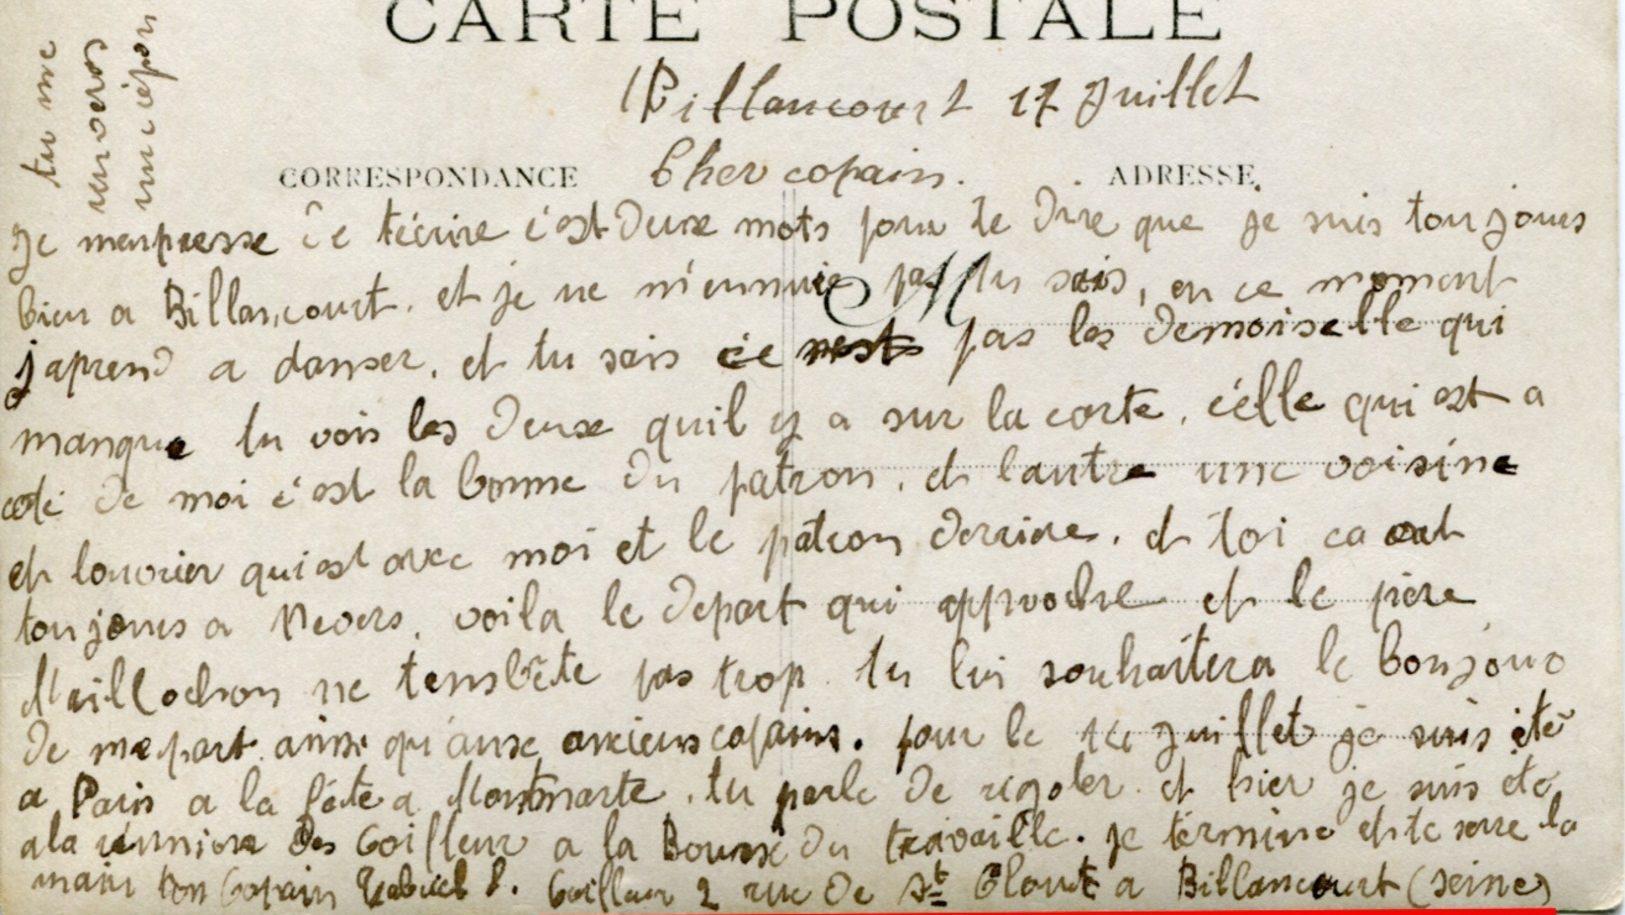 CARTE POSTALE
Billancourt 17 Juillet
CORRESPONDANCE
Cher copain.
ADRESSE
Je mempresse de técrire c'est deux mots pour te dire que je suis toujours
bien a Billancourt. et je ne m'ennuie pas tu sais, en ce moment
japrend a danser. et tu sais ce pas les demoiselle qui
manque tu vois les deux quil y a sur la carte. célle qui est a
coté de moi c'est la bonne du patron. et lautre une voisine
et louvrier qui est avec moi et le patron derrière. et toi ca
toujours a Nevers. voila le depart qui approche et le père
ne tembète pas trop. tu lui souhaitera le bonjour
de ma part ainsi qu'aux anciens copains. pour le 14 Juillet je suis été
a Paris a la fête a Montmarte. tu parle de rigoler. et hier je suis été
a la réunion des Coiffeur a la Bourse du travaille. je termine et te serre la
main ton Copain Coiffeur 2 rue de St Cloud a Billancourt (Seine)
tu me
renveras
une